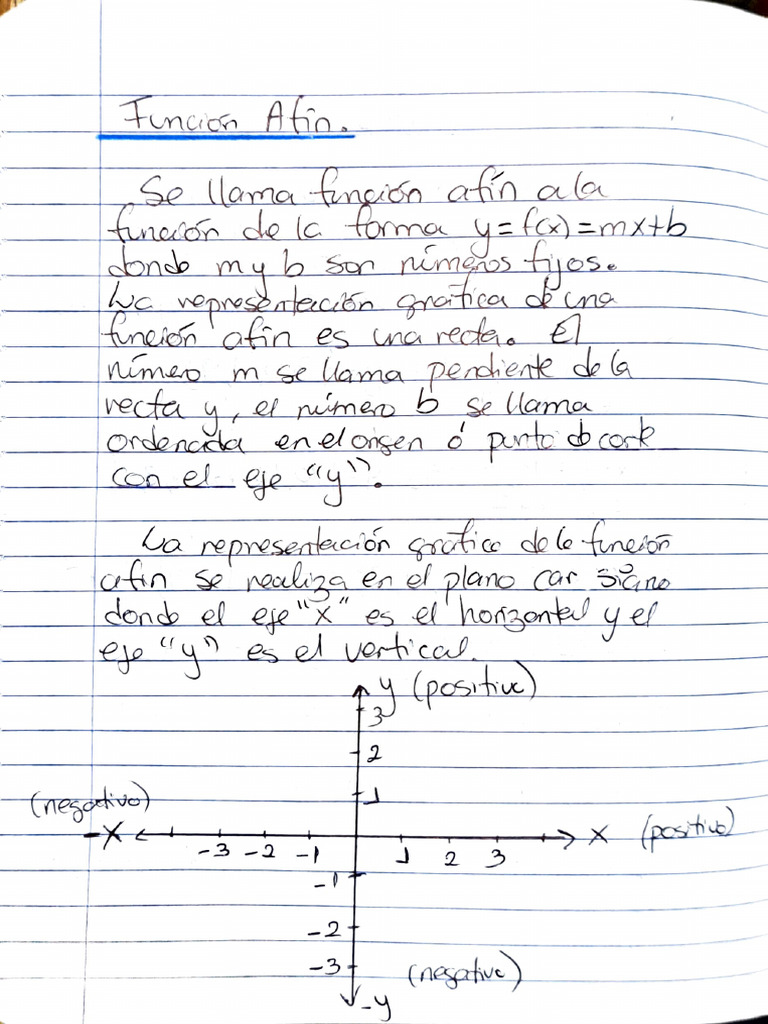 Función Afín.
Se llama función afín a la
función de la forma y = f(x) = mx+b
donde m y b son números fijos.
La representación gráfica de una
función afín es una recta. El
número m se llama pendiente de la
recta y, el número b se llama
ordenada en el origen ó punto de corte
con el eje "y".
La representación gráfica de la función
afín se realiza en el plano cartesiano
donde el eje "x" es el horizontal y el
eje "y" es el vertical.
y (positivo)
3
2
1
(negativo)
-x
-3 -2 -1 1 2 3
x (positivo)
-1
-2
-3
(negativo)
-y